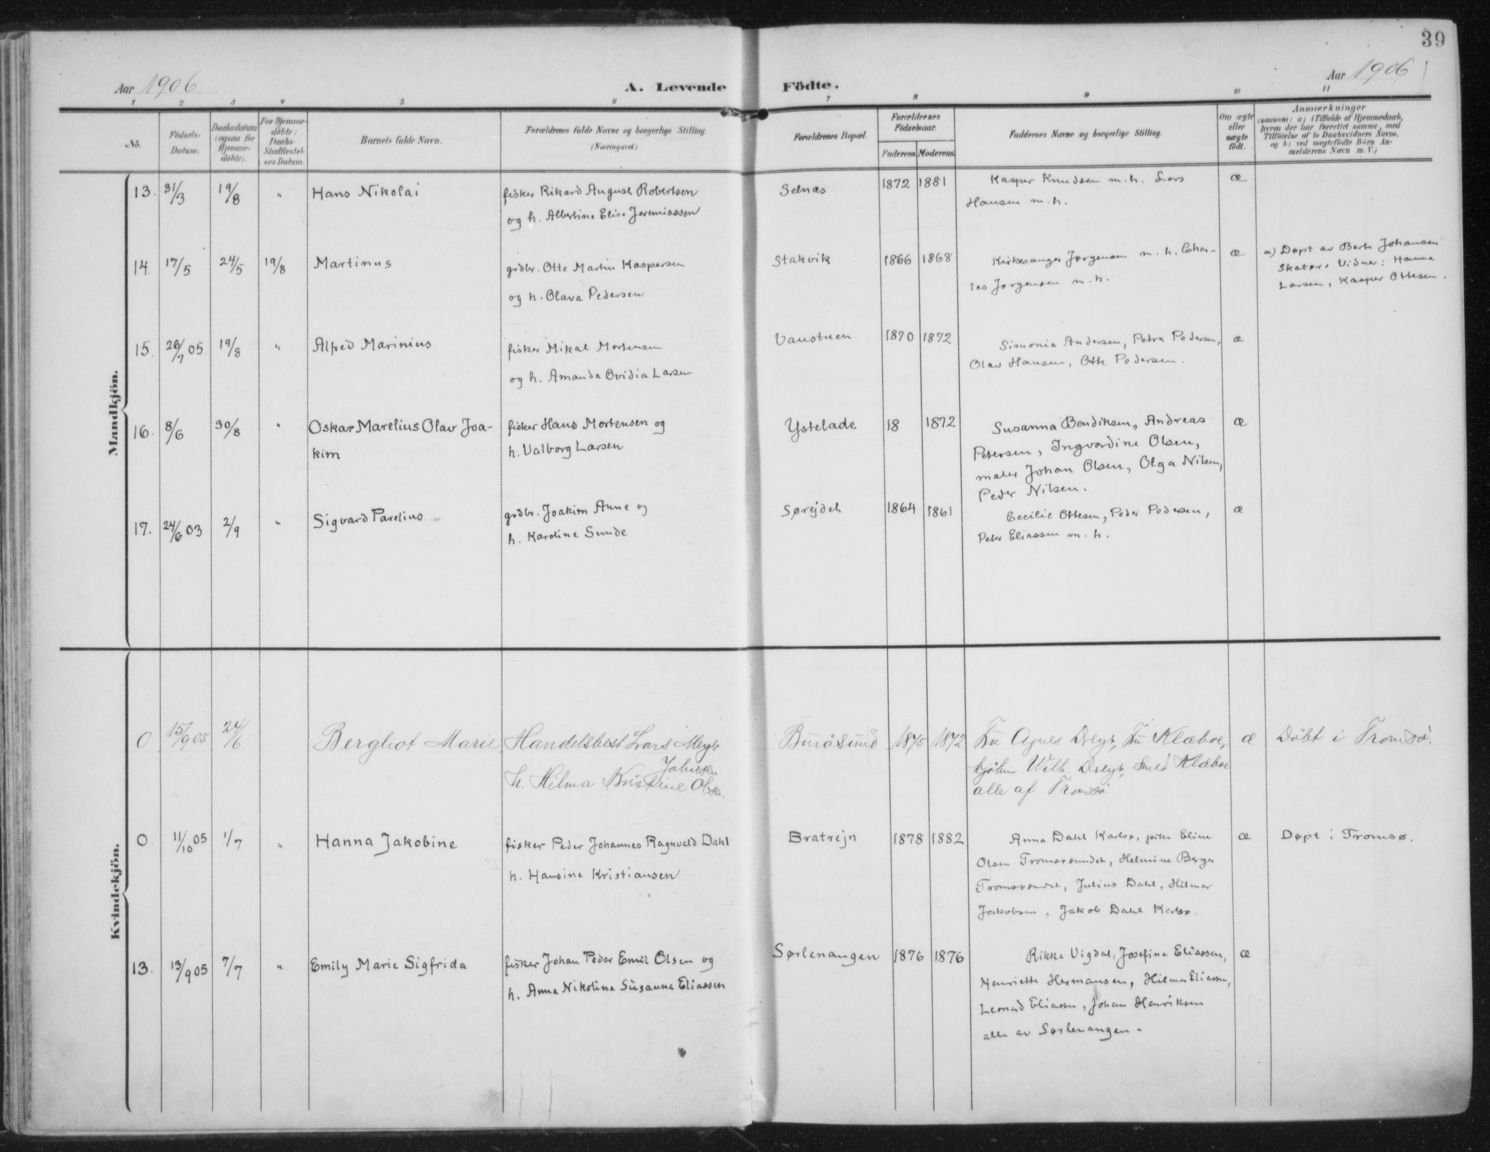 39
Aar 1906
A. Levende Födte.
Aar 1906
1 2 3 4 5 6 7 8 9 10 11
No.
Födsels-Datum.
Daabsdatum (ogsaa for Hjemme-døbte).
For Hjemme-døbte: Daabs-Stadfæstel-ses Datum.
Barnets fulde Navn.
Forældrenes fulde Navne og borgerlige Stilling.
(Næringsvei.)
Forældrenes Bopæl.
Forældrenes Födselsaar.
Faderens. Moderens.
Faddernes Navne og borgerlige Stilling.
Om ægte eller uægte födt.
Anmærkninger
Mandkjön.
13. 31/3 19/8 " Hans Nikolai fisker Rikard August Robertsen Selnæs 1872 1881 Kasper Knudsen m.h. Lars æ
og h. Albertine Elise Jeremiassen Hansen m.h.
14. 17/5 24/5 19/8 Martinus grdbr. Otte Martin Kaspersen Stakvik 1866 1868 Kirkesanger Jørgensen m.h. Char- æ a) Døpt av Berth Johansen
og h. Olava Pedersen les Jørgensen m.h. Vidner: Hanna
Larsen, Kasper Ottesen.
15. 26/7 05. 19/8 " Alfred Marinius fisker Mikal Mortensen Vanstuen 1870 1872 Simonia Andersen, Petra Pedersen, æ
og h. Amanda Ovidia Larsen Olav Hansen, Oth Pedersen.
16. 8/6 30/8 " Oskar Marelius Olav Joa- fisker Hans Mortensen og Ystelade 18 1872 Susanna Bendiksen, Andreas æ
kim h. Valborg Larsen Petersen, Ingvardine Olsen,
maler Johan Olsen, Olga Nilsen,
Peder Nilsen.
17. 24/6 03 2/9 " Sigvard Parelius grdbr. Joakim Aune og Sørejdet 1864 1861 Cecilie Ottesen, Peder Pedersen, æ
h. Karoline Sunde Peter Eliassen m.h.
Kvindekjön.
0 15/9 05 24/6 Bergliot Marie Handelsbest. Lars Meyer 1875 1872 Fru Agnes Dreyer, Fru Klæboe, æ Döbt i Tromsö.
Jakobsen
h. Hilma Kristine Olsen. Wilh. Dreyer, Klæboe
alle af Tromsö
0. 11/10 05 1/7 " Hanna Jakobine fisker Peder Johannes Ragnvald Dahl Bratrejn 1878 1882 Anna Dahl Karlsø, pike Eline æ Døpt i Tromsø.
h. Hansine Kristiansen Olsen Tromsøsundet, Helmine Berger
Tromsøsundet, Julius Dahl, Hilmar
Jakobsen, Jakob Dahl Karlsø.
13. 13/9 05 7/7 " Emily Marie Sigfrida fisker Johan Peder Emil Olsen og Sørlenangen 1876 1876 Rikke Vigdal, Josefine Eliassen, æ
h. Anna Nikoline Susanna Eliassen Henriette Hermansen, Hilma Eliassen,
Leonard Eliassen, Johan Henriksen
alle av Sørlenangen.